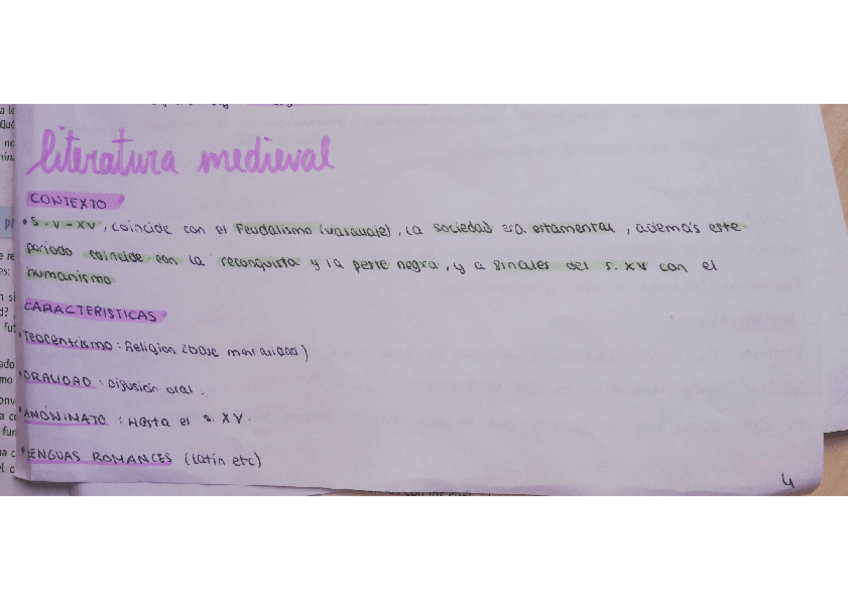 literatura medieval
CONTEXTO
• S. V - XV, coincide con el Feudalismo (vasallaje), la sociedad era estamental, además este
periodo coincide con la reconquista y la peste negra, y a finales del s. XV con el
humanismo
CARACTERISTICAS
• Teocentrismo: Religion (base mentalidad)
• ORALIDAD: Difusión oral.
• ANÓNIMATO: Hasta el s. XV.
• LENGUAS ROMANCES (Latín etc)
4